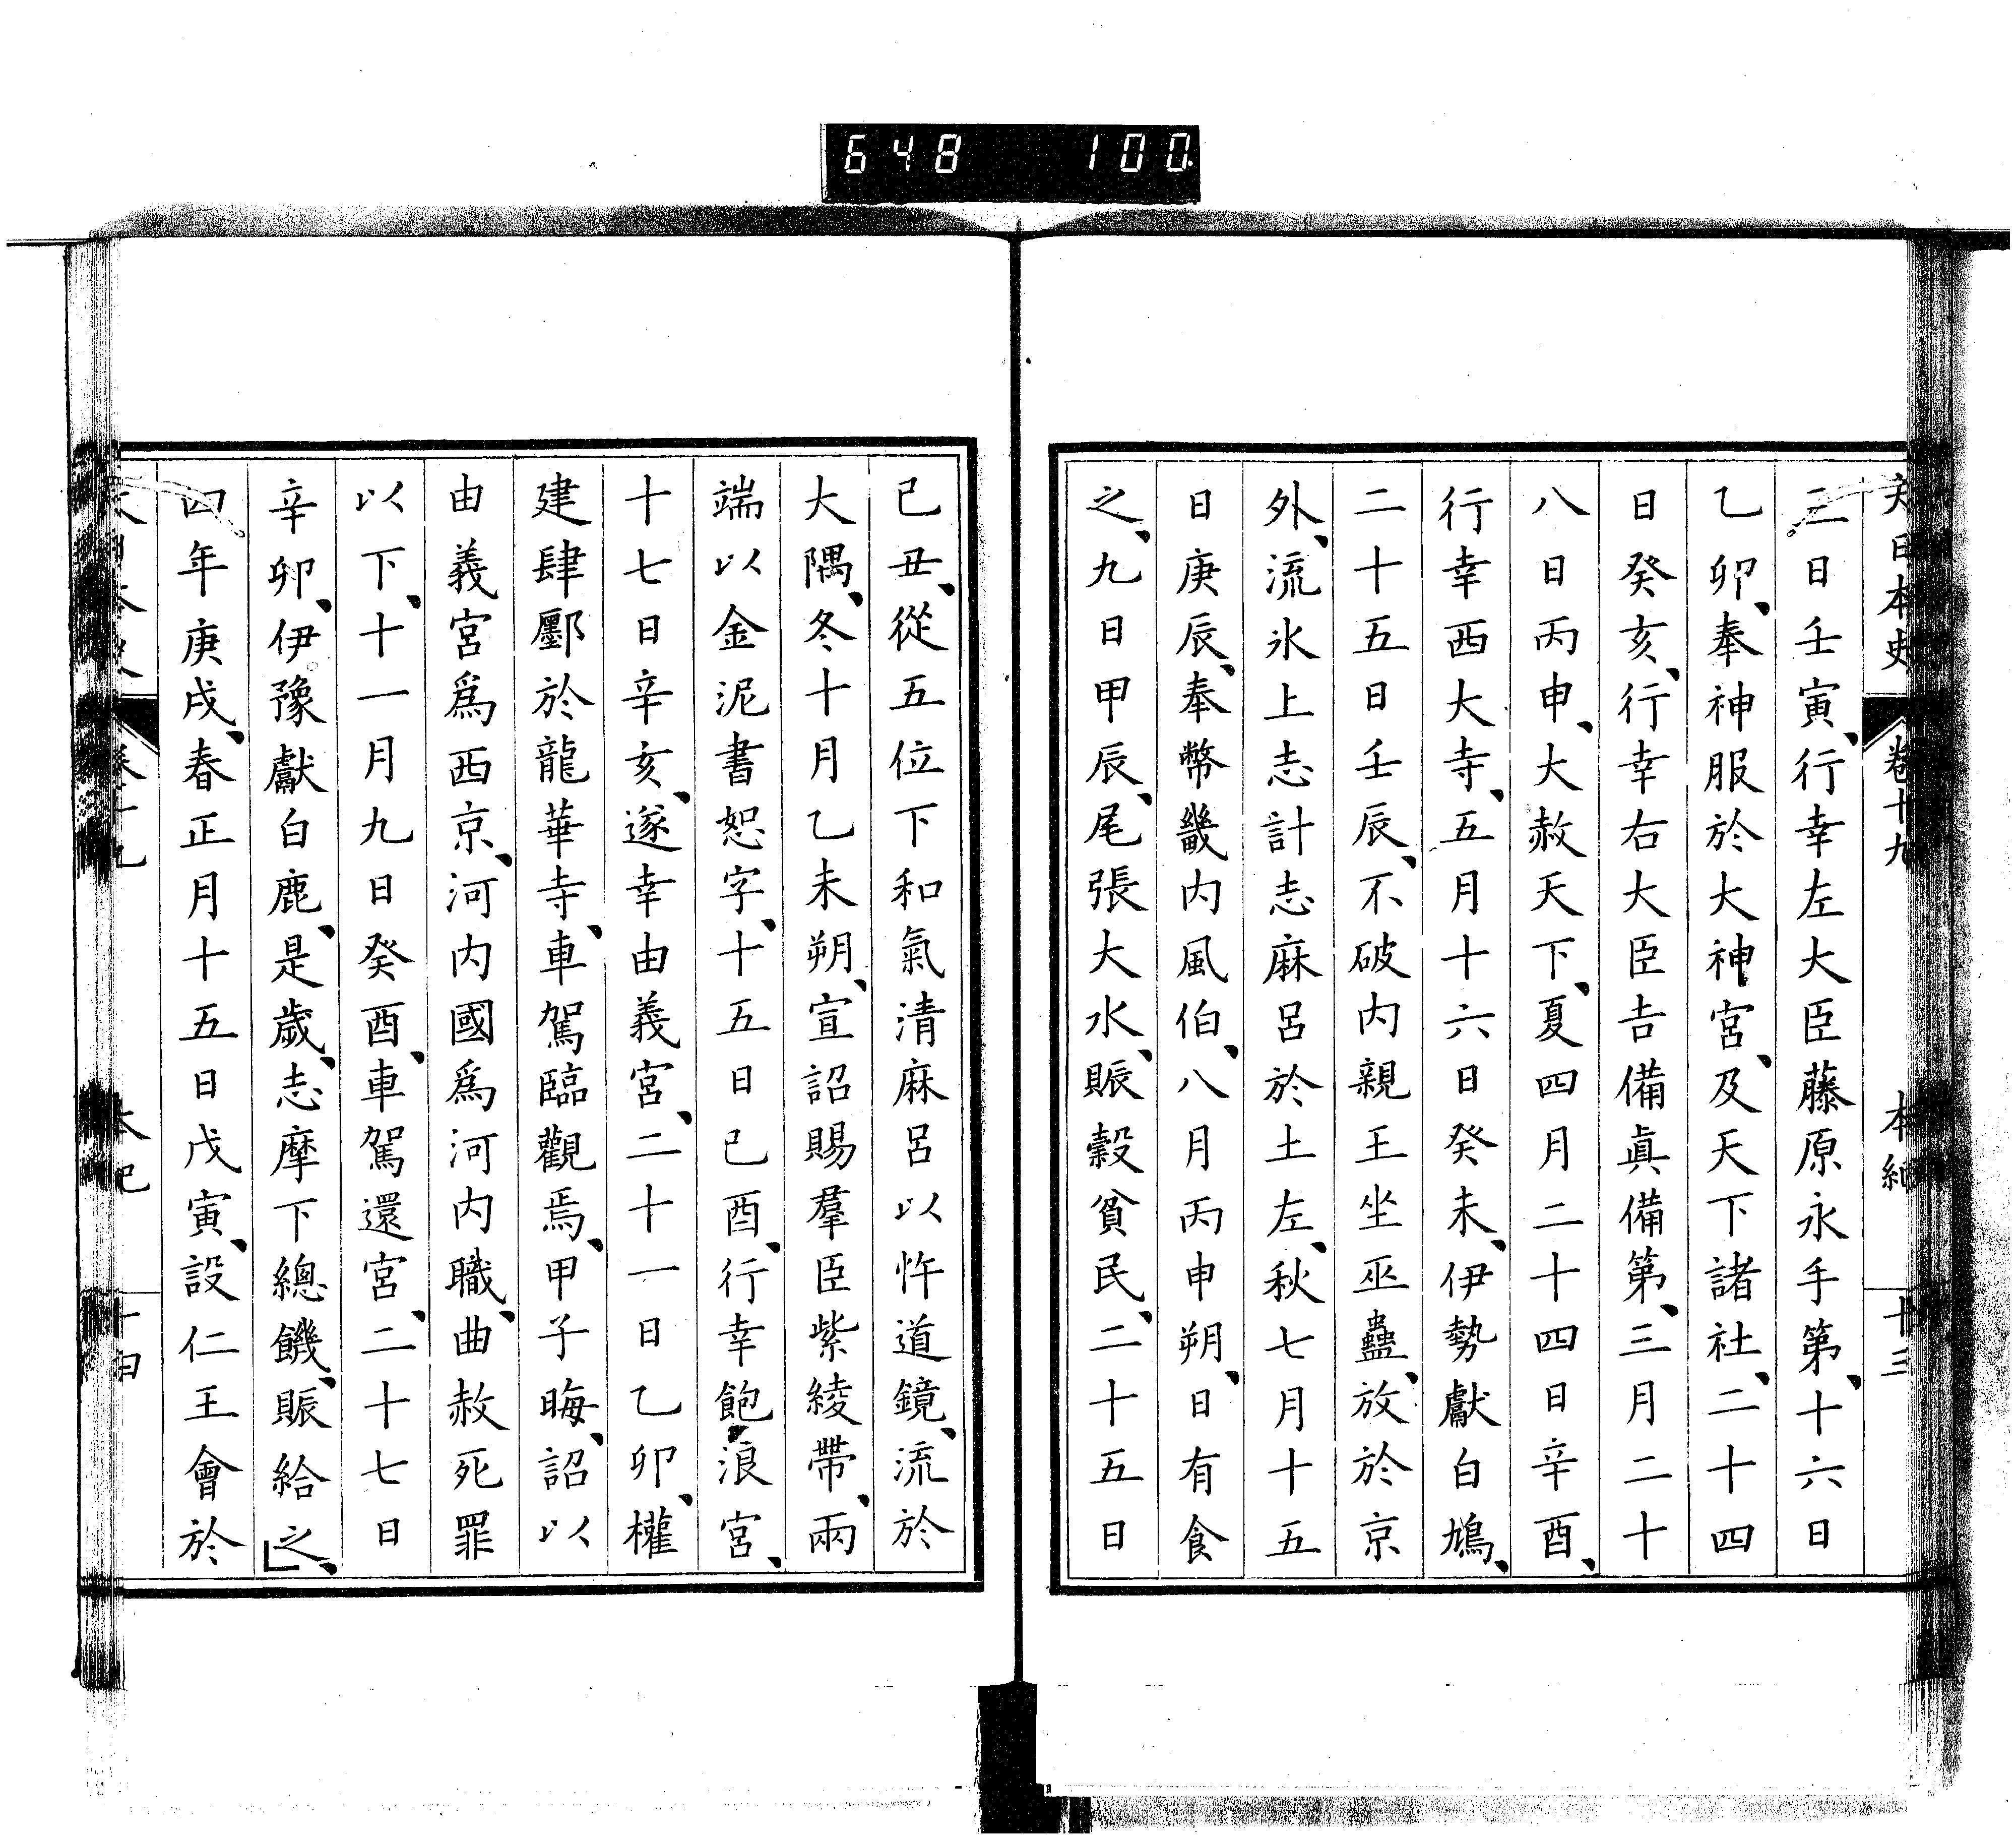 648 100
大日本史 卷十九 本紀 十三
三日壬寅、行幸左大臣藤原永手第、十六日
乙卯、奉神服於大神宮、及天下諸社、二十四
日癸亥、行幸右大臣吉備眞備第、三月二十
八日丙申、大赦天下、夏四月二十四日辛酉、
行幸西大寺、五月十六日癸未、伊勢獻白鳩、
二十五日壬辰、不破內親王坐巫蠱、放於京
外、流氷上志計志麻呂於土左、秋七月十五
日庚辰、奉幣畿內風伯、八月丙申朔、日有食
之、九日甲辰、尾張大水、賑穀貧民、二十五日
己丑、從五位下和氣清麻呂以忤道鏡、流於
大隅、冬十月乙未朔、宣詔賜羣臣紫綾帶、兩
端以金泥書恕字、十五日己酉、行幸飽浪宮、
十七日辛亥、遂幸由義宮、二十一日乙卯、權
建肆鄽於龍華寺、車駕臨觀焉、甲子晦、詔以
由義宮爲西京、河內國爲河內職、曲赦死罪
以下、十一月九日癸酉、車駕還宮、二十七日
辛卯、伊豫獻白鹿、是歲、志摩下總饑、賑給之、
四年庚戌、春正月十五日戊寅、設仁王會於